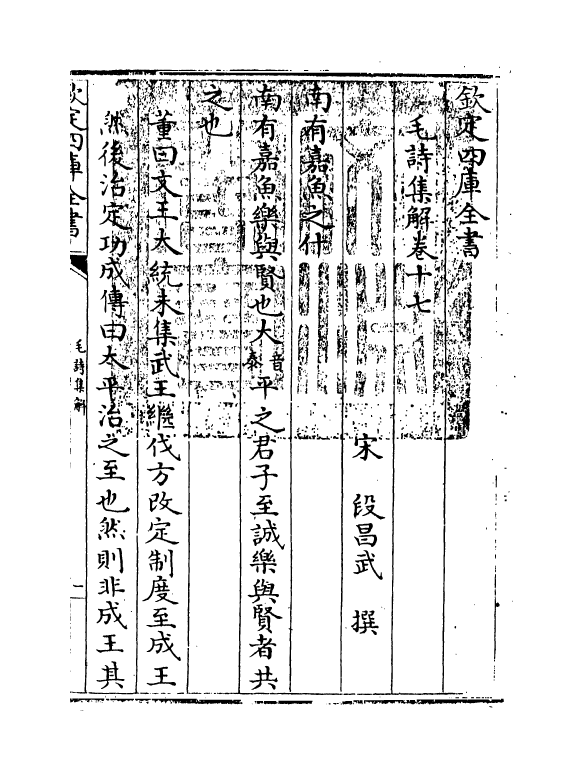 欽定四庫全書
毛詩集解卷十七
宋　段昌武　撰
南有嘉魚之什
南有嘉魚樂與賢也大音泰平之君子至誠樂與賢者共
之也
董曰文王大統未集武王繼伐方改定制度至成王
然後治定功成傳曰太平治之至也然則非成王其
欽定四庫全書
毛詩集解
一